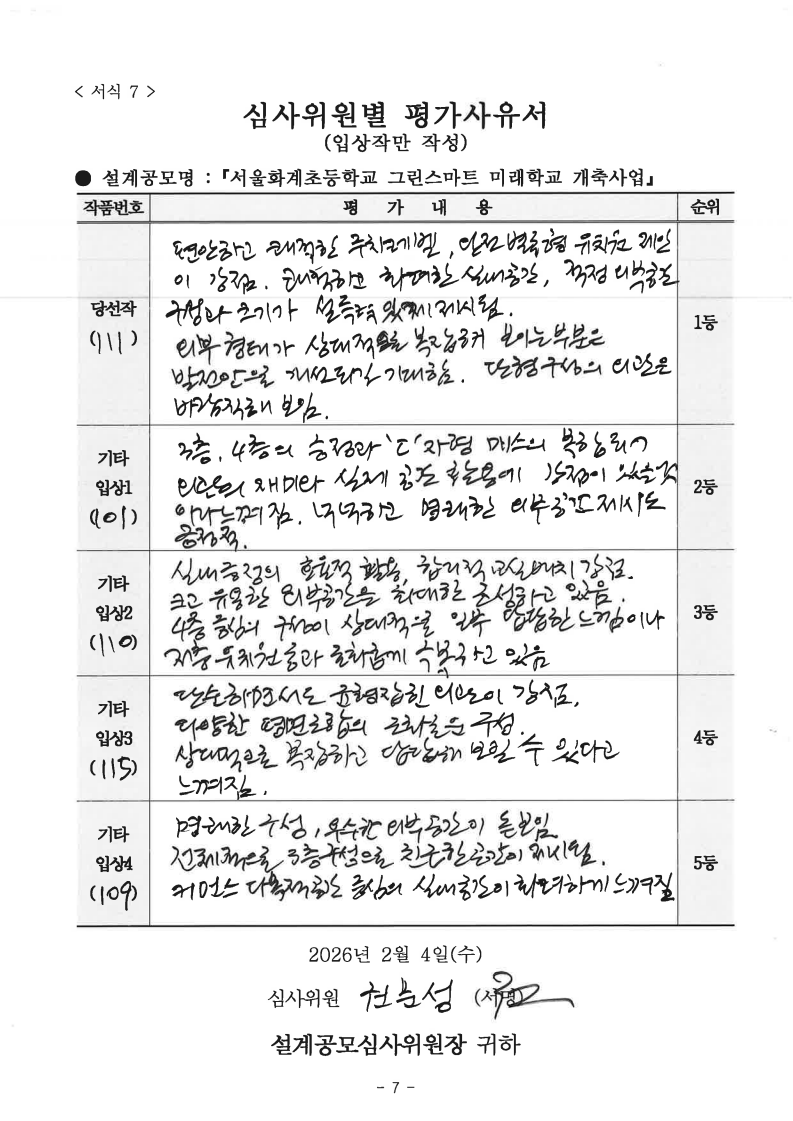 < 서식 7 >
심사위원별 평가사유서
(입상작만 작성)
● 설계공모명 : 『서울화계초등학교 그린스마트 미래학교 개축사업』
작품번호 평 가 내 용 순위
당선작
(111)
편안하고 쾌적한 주차레벨, 안전 별동형 유치원 제안
이 강점. 쾌적하고 화려한 실내공간, 적정 외부공간
구성과 크기가 설득력 있게 제시됨.
외부형태가 상대적으로 복잡하게 보이는 부분은
발전안으로 개선되길 기대함. ㄷ형구성의 외관은
바람직해 보임.
1등
기타
입상1
(101)
3층, 4층의 층정과 'ㄷ'자형 매스의 복합되어
외관의 재미와 실제 공간 활용에 강점이 있을것
이라 느껴짐. 넉넉하고 명쾌한 외부공간 제시도
긍정적.
2등
기타
입상2
(110)
실내중정의 효율적 활용, 합리적 교실배치 강점.
크고 유용한 외부공간을 최대한 조성하고 있음.
4층 중심의 구성이 상대적으로 일부 답답한 느낌이나
저층 유치원동과 조화롭게 극복하고 있음
3등
기타
입상3
(115)
단순하면서도 균형잡힌 외관이 강점,
다양한 평면조합의 조화로운 구성.
상대적으로 복잡하고 답답해 보일 수 있다고
느껴짐.
4등
기타
입상4
(109)
명쾌한 구성, 우수한 외부공간이 돋보임
전체적으로 3층구성으로 친근한 공간이 제시됨.
커먼스 다목적공간 중심의 실내공간이 화려하게 느껴짐
5등
2026년 2월 4일(수)
심사위원 권문성 (서명)
설계공모심사위원장 귀하
- 7 -